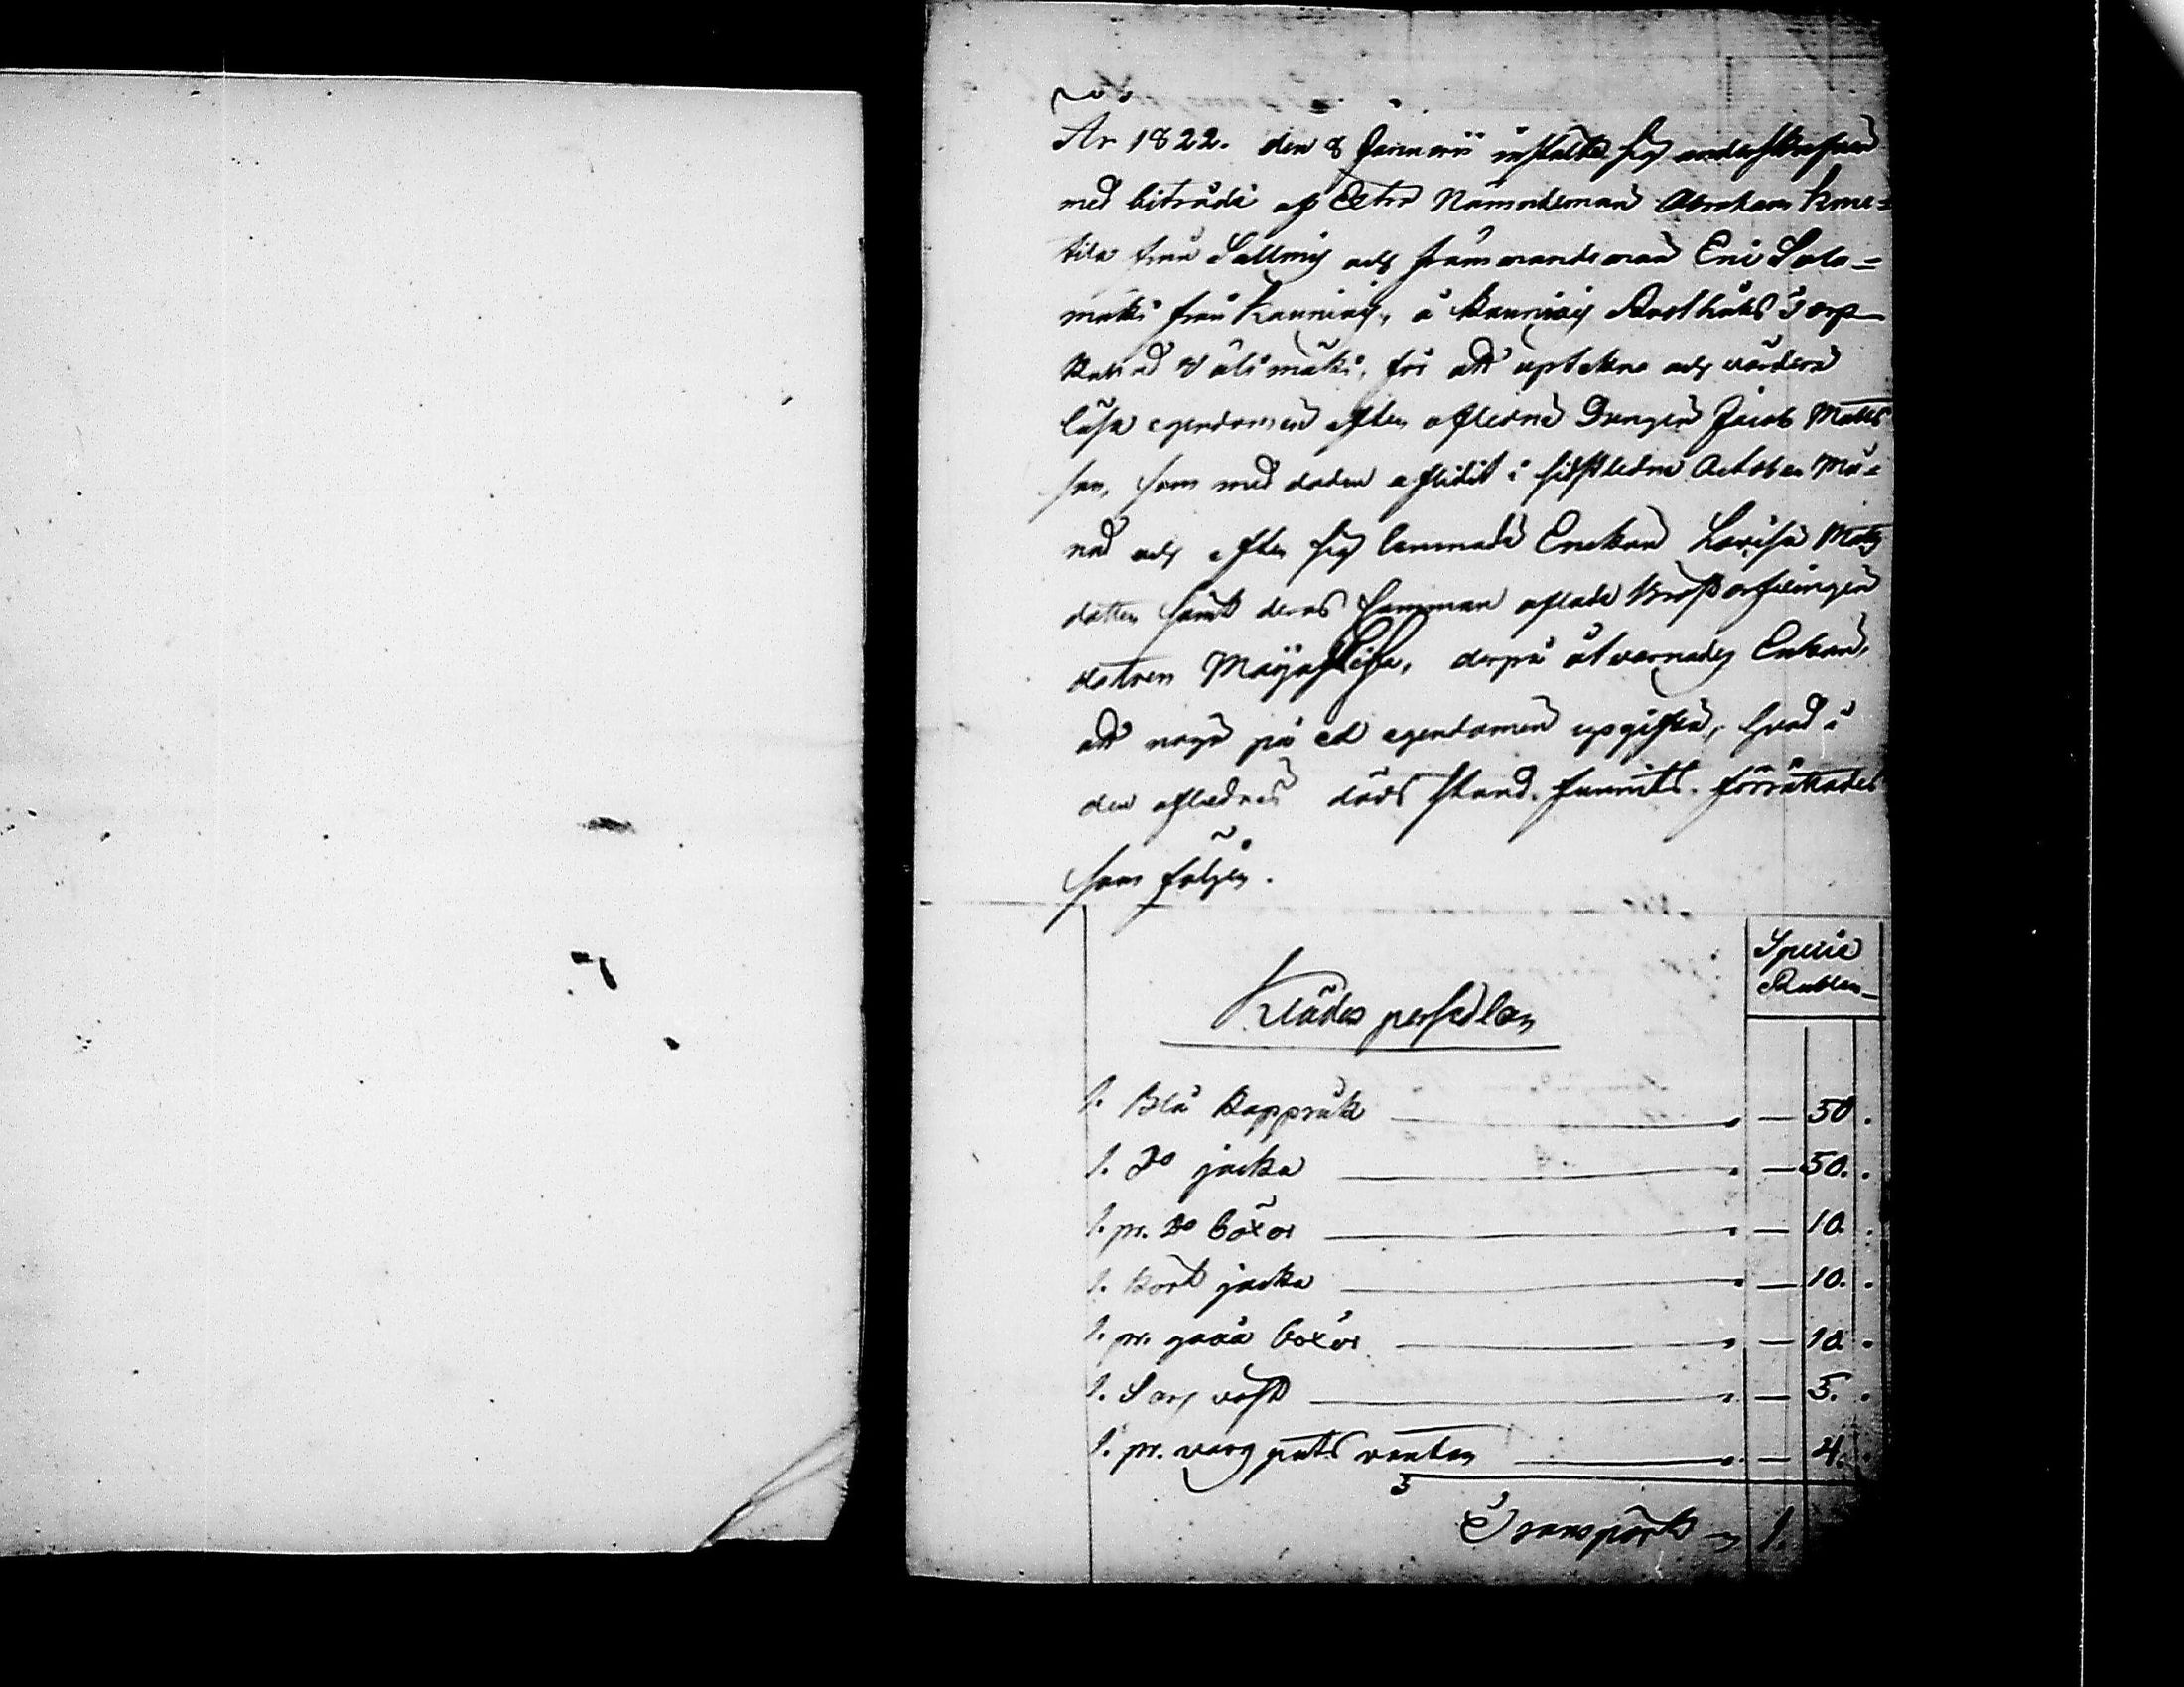 År 1822. den 8 Januarii instälte sig underskrefven
med biträde af Extra Nämndeman Abraham
från Sallmis och främmande man Eric Salo=
mäki från Kauniais, å Kauniais Rusthålls Torp
kallad Välimäki, för att uptekna och värdera
lösa egendomen efter afledne Drengen Jacob Matts
son, som med döden aflidit i sidstledne October Må=
nad och efter sig lemnade Enckan Lovisa Matts
dotter samt deras samman aflade Bröstarfvingen
dotren Maija Lisa, derpå åtvarnades Enkan,
att noga på ed egendomen upgifva, hvad i
den aflednes döds stund funnits. förrättades
som följer.
Specie
Rubler
Klädes persedlar
1. Blå Kappråck — 50.
1. Do jacka — 50.
1. pr. Do böxor — 10.
1. kort jacka — 10.
1. pr. gråa böxor — 10.
1. Sarj väst — 5.
1. pr. varg vantar — 4.
Transport 1.